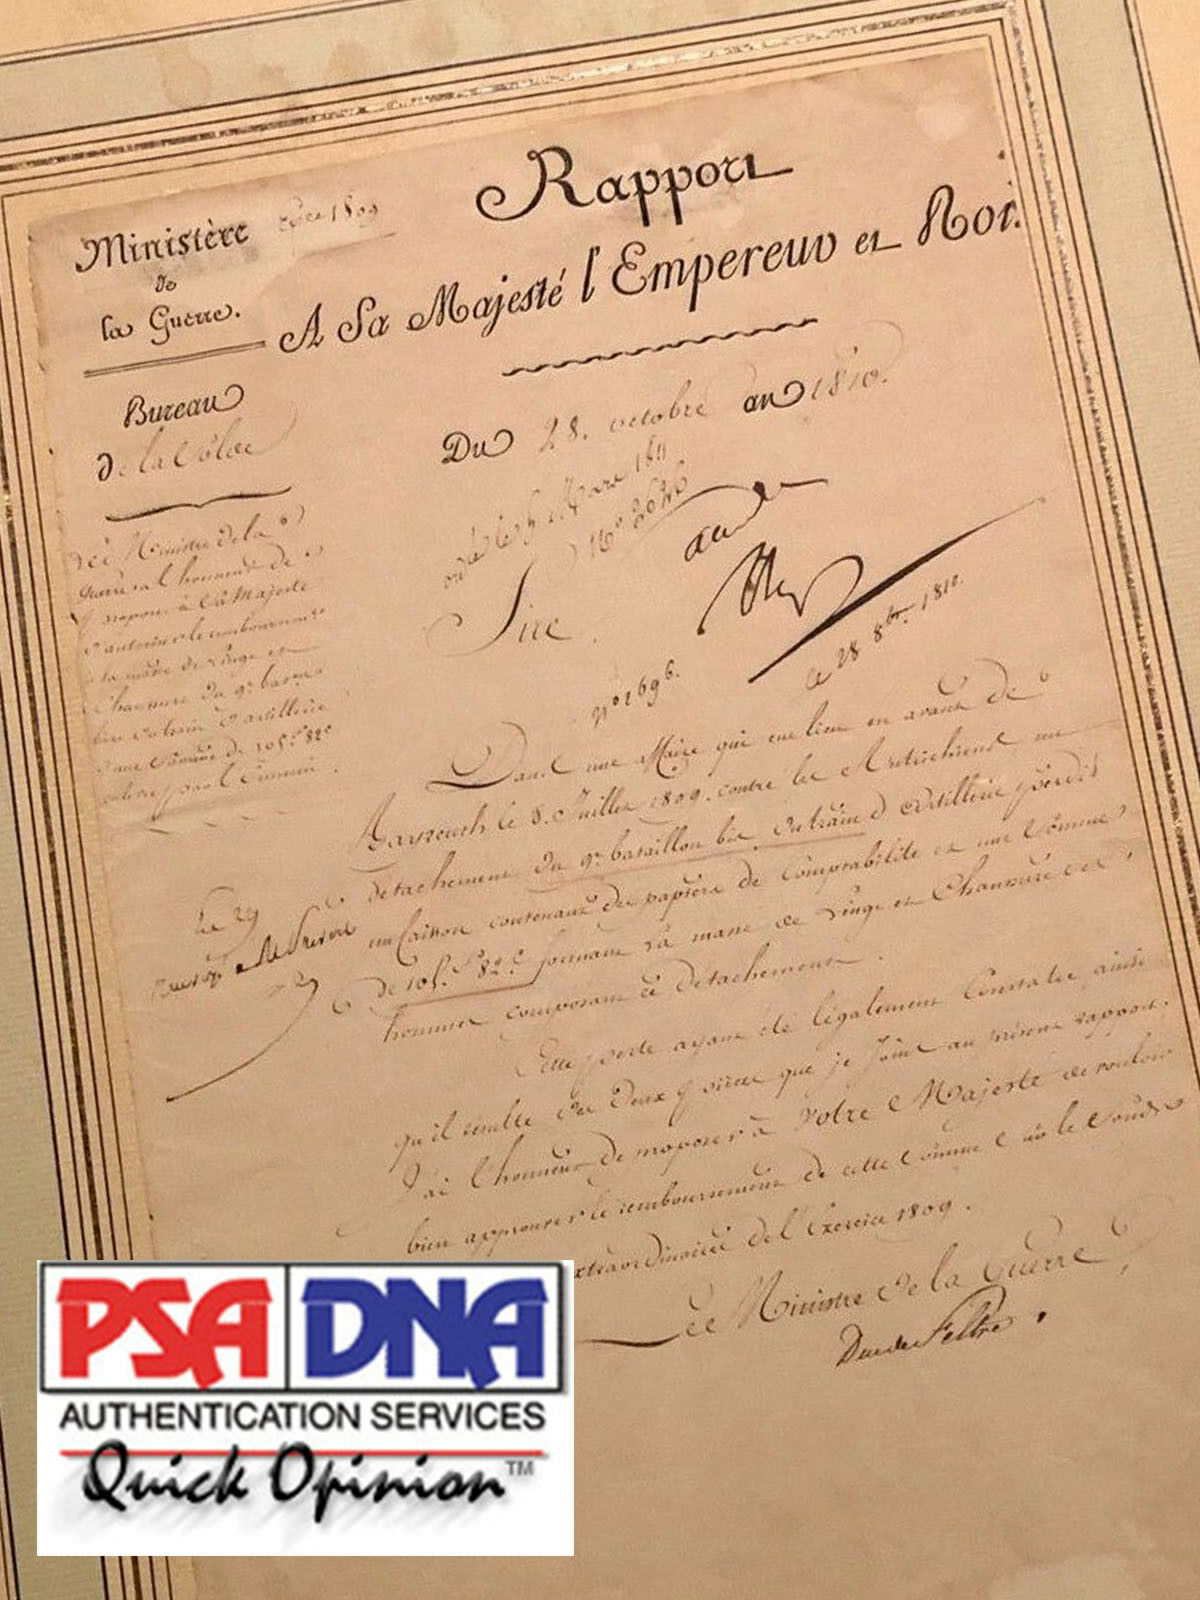 Rapport
A Sa Majesté l'Empereur et Roi.
Ministère
de
la Guerre.
1809
Bureau
de la Solde
Du 28. octobre an 1810.
Mars 1811
Nº 2646
Sire.
nº 1696.
ce 28 8bre 1810.
Le Ministre de la
guerre a l'honneur de
proposer à Sa Majesté
d'autoriser le remboursement
à la masse de Linge et
Chaussure du 9e bataillon
bis du train d'artillerie
d'une Somme de 105f. 82c
enlevée par l'Ennemi.
Dans une affaire qui eut lieu en avant de
le 8. Juillet 1809. contre les Autrichiens un
détachement du 9e bataillon bis du train d'artillerie perdit
un Caisson contenant des papiers de comptabilité et une Somme
de 105f. 82c. formant la masse de Linge et Chaussure des
hommes composant ce détachement.
Cette perte ayant été légalement Constatée ainsi
qu'il résulte des deux pièces que je joins au présent rapport,
J'ai l'honneur de proposer à Votre Majesté de vouloir
bien approuver le remboursement de cette Somme sur le fonds
extraordinaire de l'Exercice 1809.
Le Ministre de la Guerre
Duc de Feltre.
PSA DNA
AUTHENTICATION SERVICES
Quick Opinion™